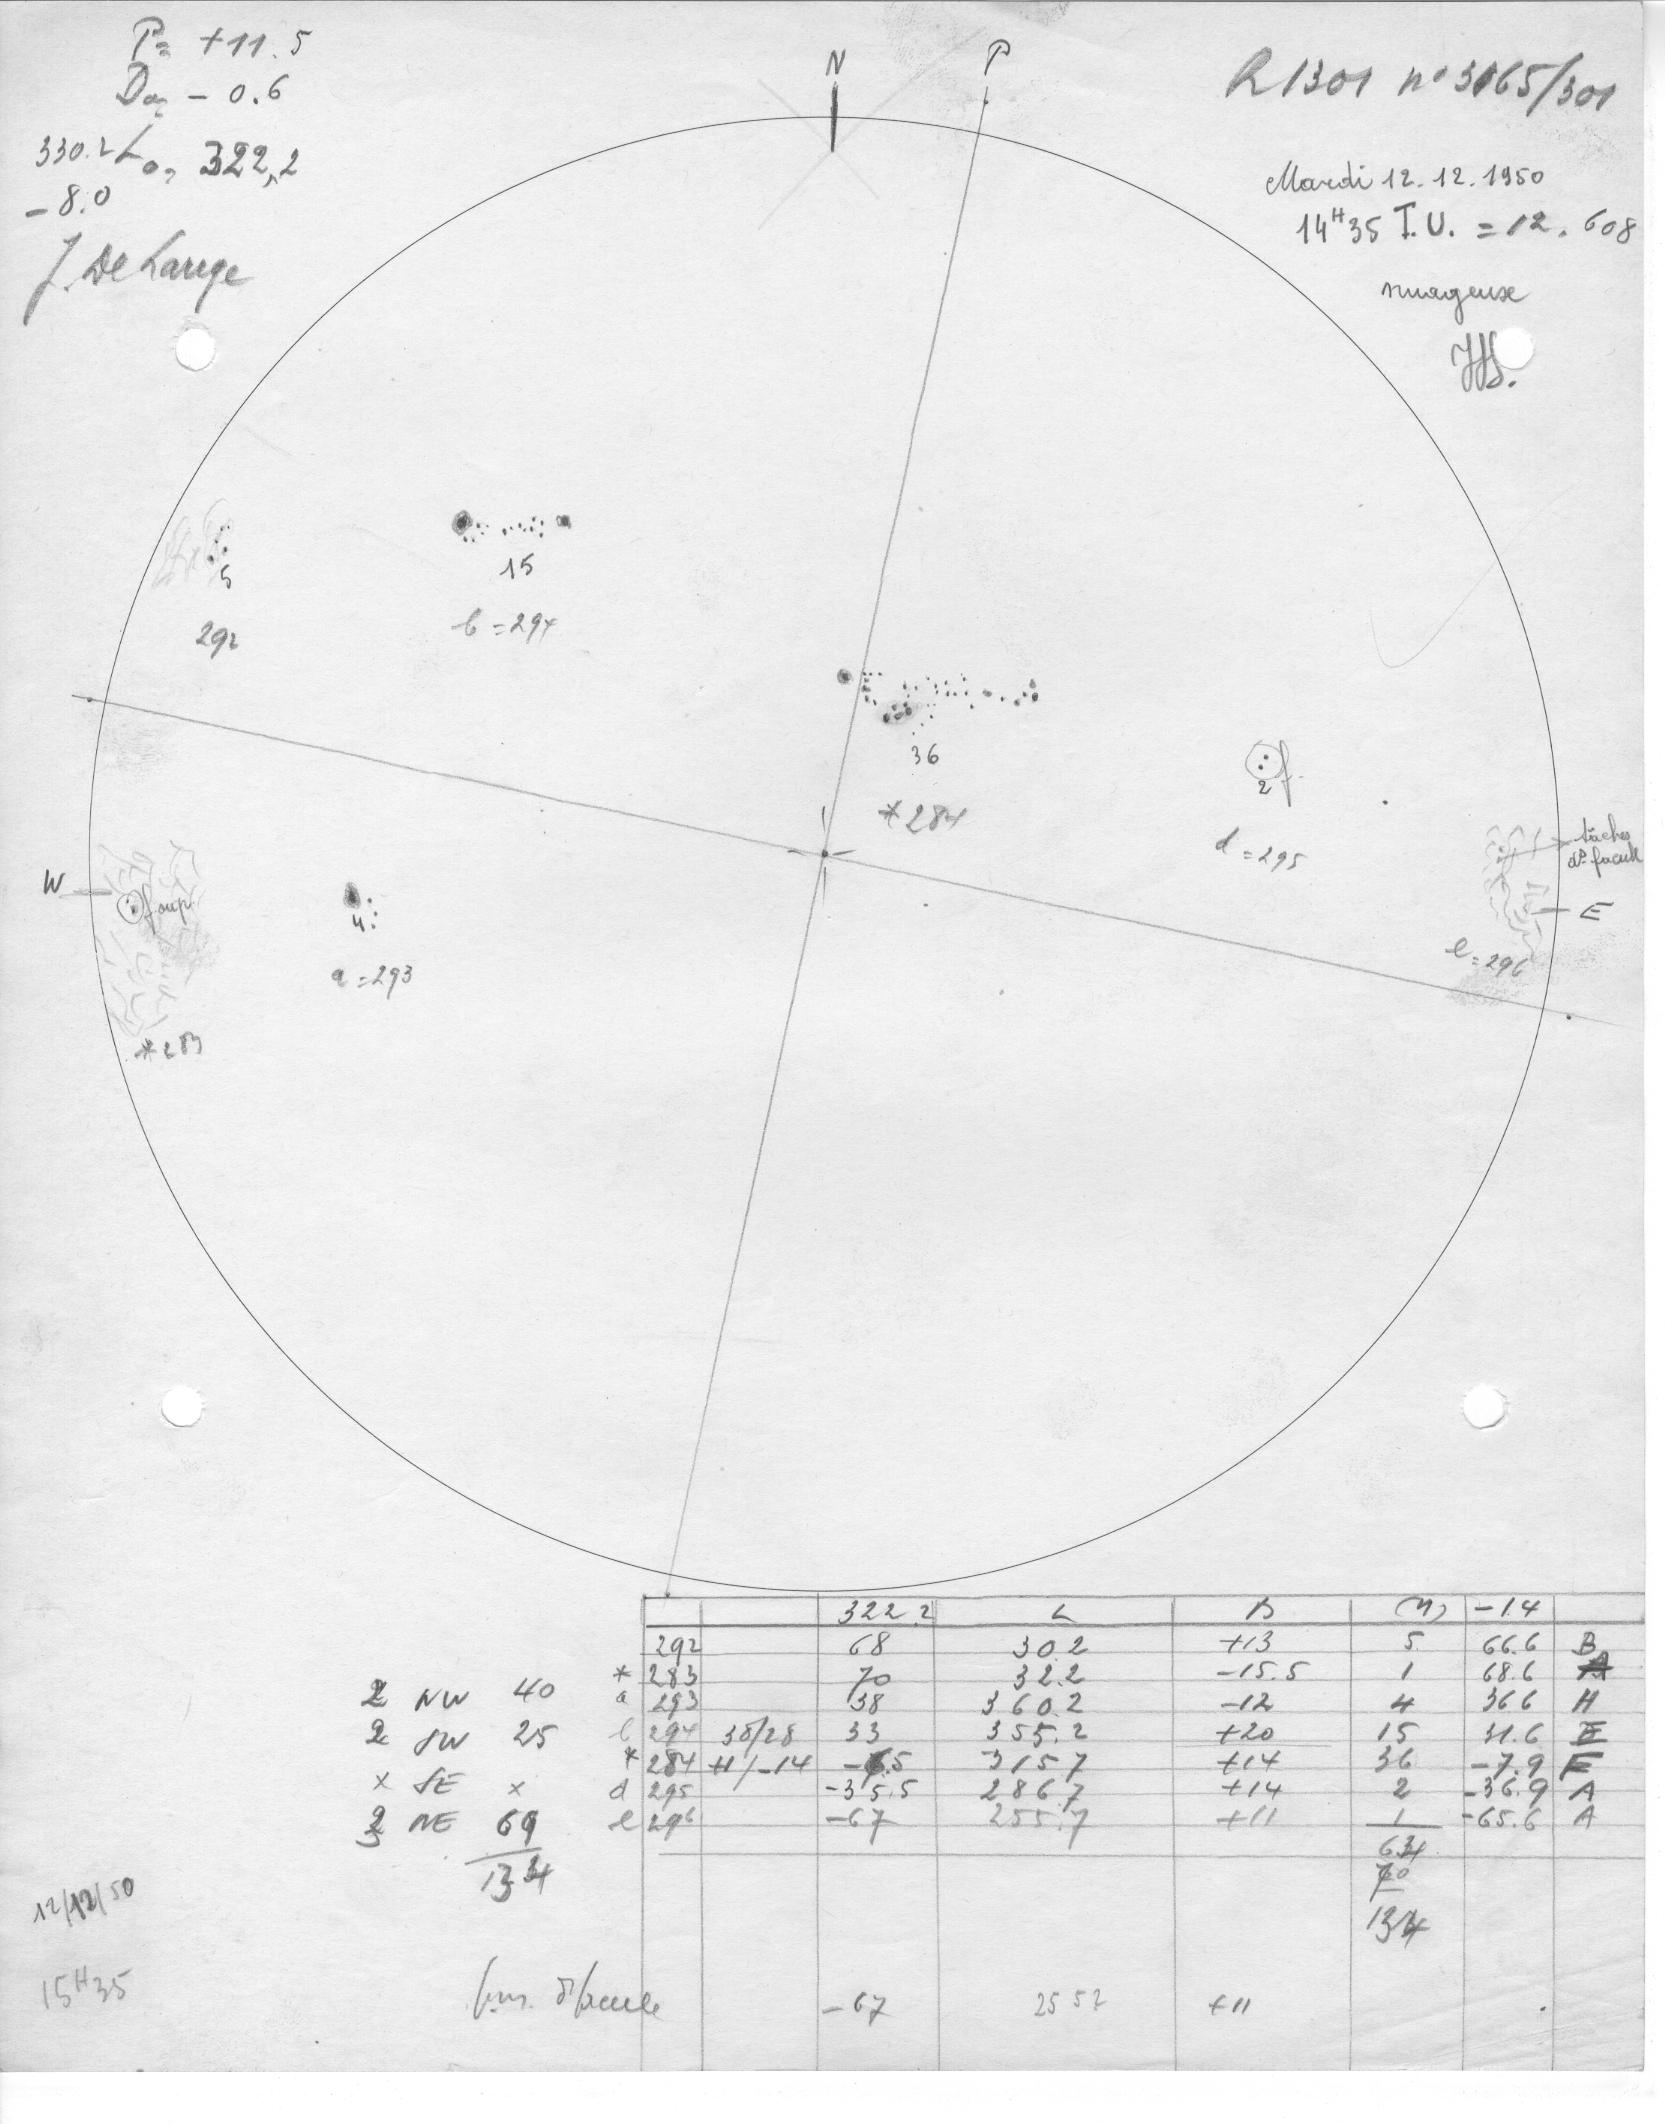 P= +11.5
Do= -0.6
330.2 Lo= 322,2
-8.0
J. De Lange
N
P
R1301 n° 3165/301
Mardi 12.12.1950
14H35 T.U. = 12.608
nuageuse
5
292
15
b=294
36
*284
2 f.
d=295
tâches
ds facule
E
e=296
W
f
4
a=293
*283
322.2 L B (N) -1.4
292 68 30.2 +13 5 66.6 B
*283 70 32.2 -15.5 1 68.6 A
2 NW 40 a 293 38 360.2 -12 4 36.6 H
2 SW 25 b 294 38/28 33 355.2 +20 15 31.6 E
*284 +1/-14 -6.5 315.7 +14 36 -7.9 F
x SE x d 295 -35.5 286.7 +14 2 -36.9 A
3 NE 69 e 296 -67 255.7 +11 1 -65.6 A
134
64
70
134
12/12/50
15H35
facule -67 255.2 +11